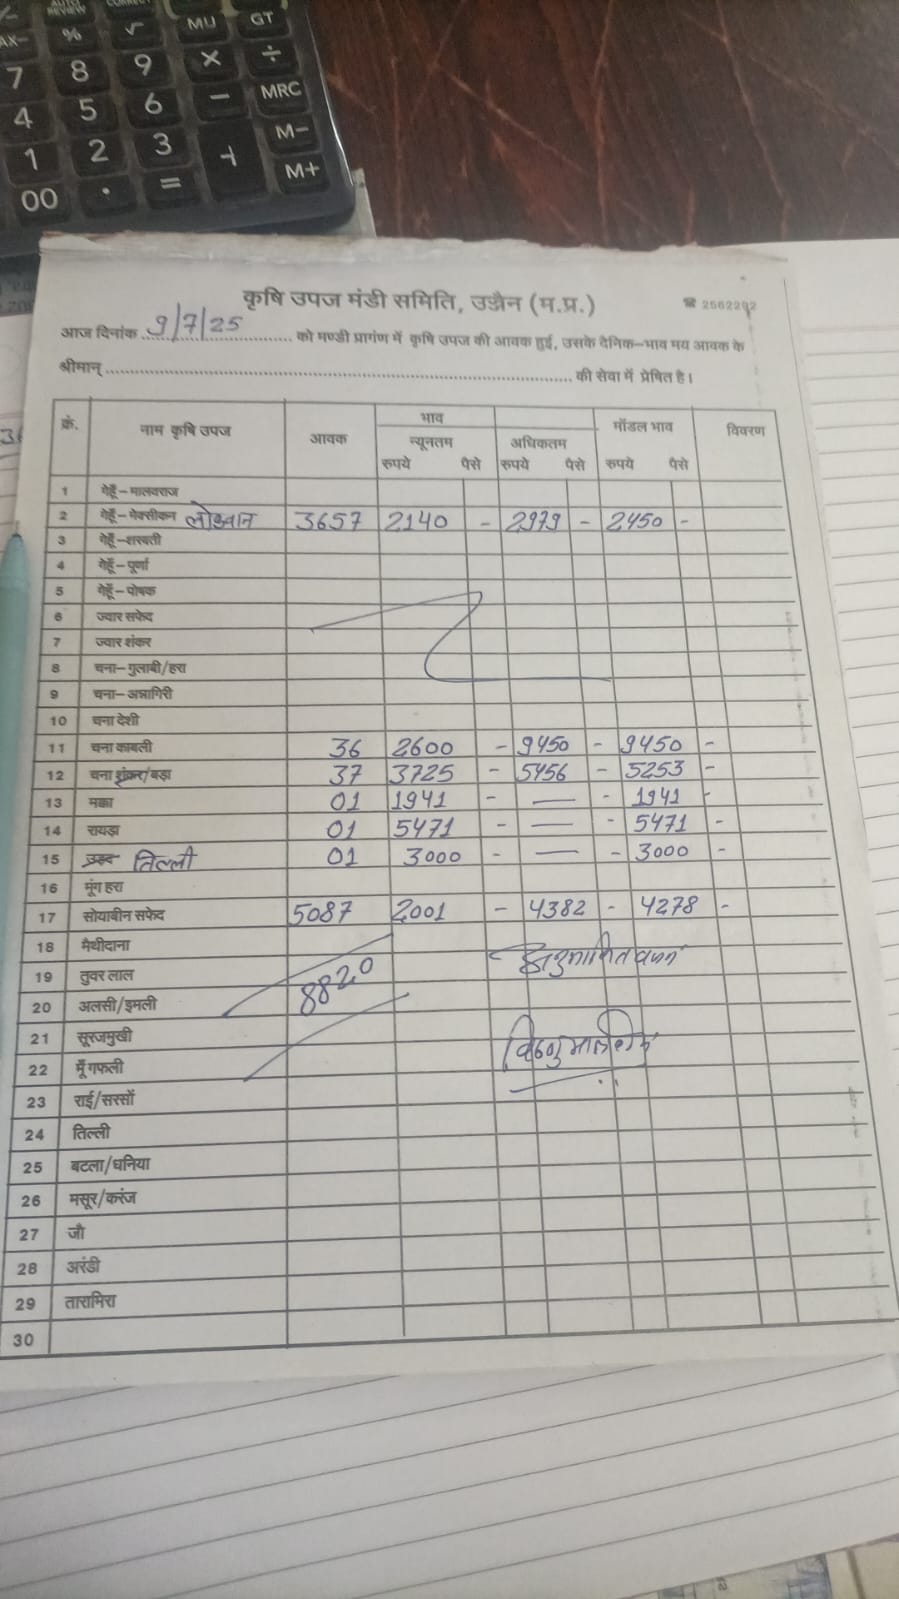 MU GT
AX- % √ × ÷
7 8 9 - MRC
4 5 6 M-
1 2 3 + M+
00 . =
कृषि उपज मंडी समिति, उज्जैन (म.प्र.) ☎ 2562292
आज दिनांक 9/7/25 को मण्डी प्रागंण में कृषि उपज की आवक हुई, उसके दैनिक-भाव मय आवक के
श्रीमान् ........ की सेवा में प्रेषित है।
क्रं. नाम कृषि उपज आवक भाव मॉडल भाव विवरण
न्यूनतम अधिकतम
रुपये पैसे रुपये पैसे रुपये पैसे
1 गेहूँ-मालवराज
2 गेहूँ-मेक्सीकन लोकवान 3657 2140 - 2979 - 2450 -
3 गेहूँ-शरबती
4 गेहूँ-पूर्णा
5 गेहूँ-पोषक
6 ज्वार सफेद
7 ज्वार शंकर
8 चना-गुलाबी/हरा
9 चना-अन्नागिरी
10 चना देशी
11 चना काबली 36 2600 - 9450 - 9450 -
12 चना शंकर/बड़ा 37 3725 - 5456 - 5253 -
13 मक्का 01 1941 - — - 1941 -
14 रायड़ा 01 5471 - — - 5471 -
15 उड़द तिल्ली 01 3000 - — - 3000 -
16 मूंग हरा
17 सोयाबीन सफेद 5087 2001 - 4382 - 4278 -
18 मैथीदाना
19 तुवर लाल 8820
20 अलसी/इमली
21 सूरजमुखी
22 मूँगफली
23 राई/सरसों
24 तिल्ली
25 बटला/धनिया
26 मसूर/करंज
27 जौ
28 अरंडी
29 तारामिरा
30